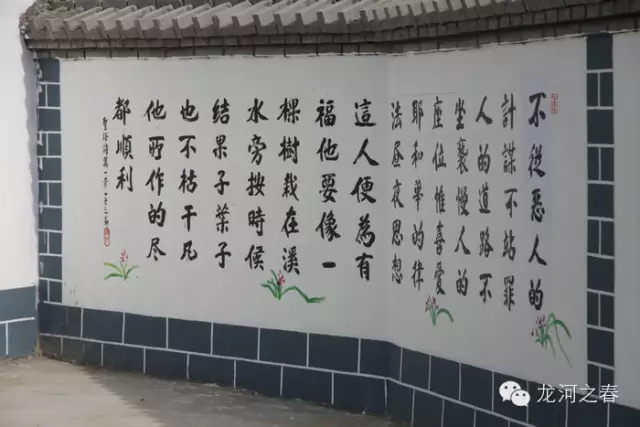 不從惡人的
計謀不站罪
人的道路不
坐褻慢人的
座位惟喜愛
耶和華的律
法晝夜思想
這人便為有
福他要像一
棵樹栽在溪
水旁按時候
結果子葉子
也不枯干凡
他所作的尽
都順利
聖经诗篇一章一至三节
龙河之春